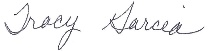 Tracy Garcia